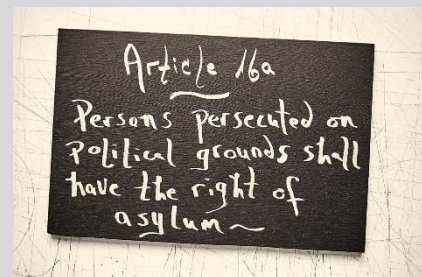 Article 16a
Persons persecuted on
political grounds shall
have the right of
asylum~